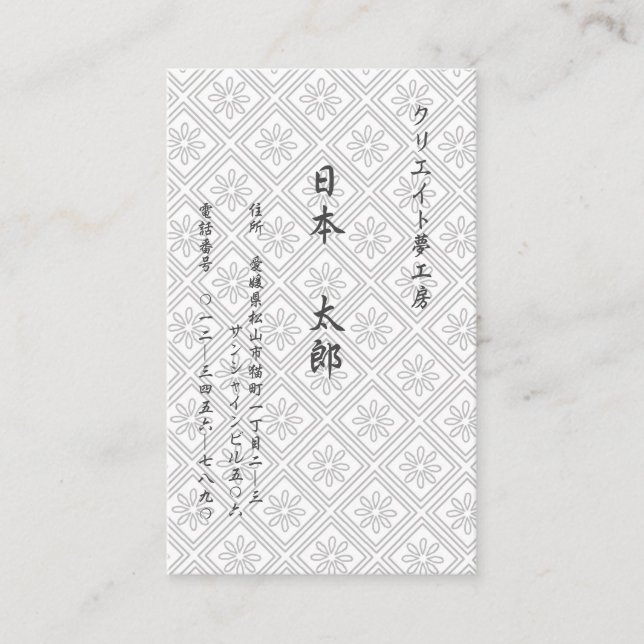 クリエイト夢工房
日本 太郎
住所 愛媛県松山市猫町一丁目二―三
サンシャインビル五〇六
電話番号 〇一二―三四五六―七八九〇